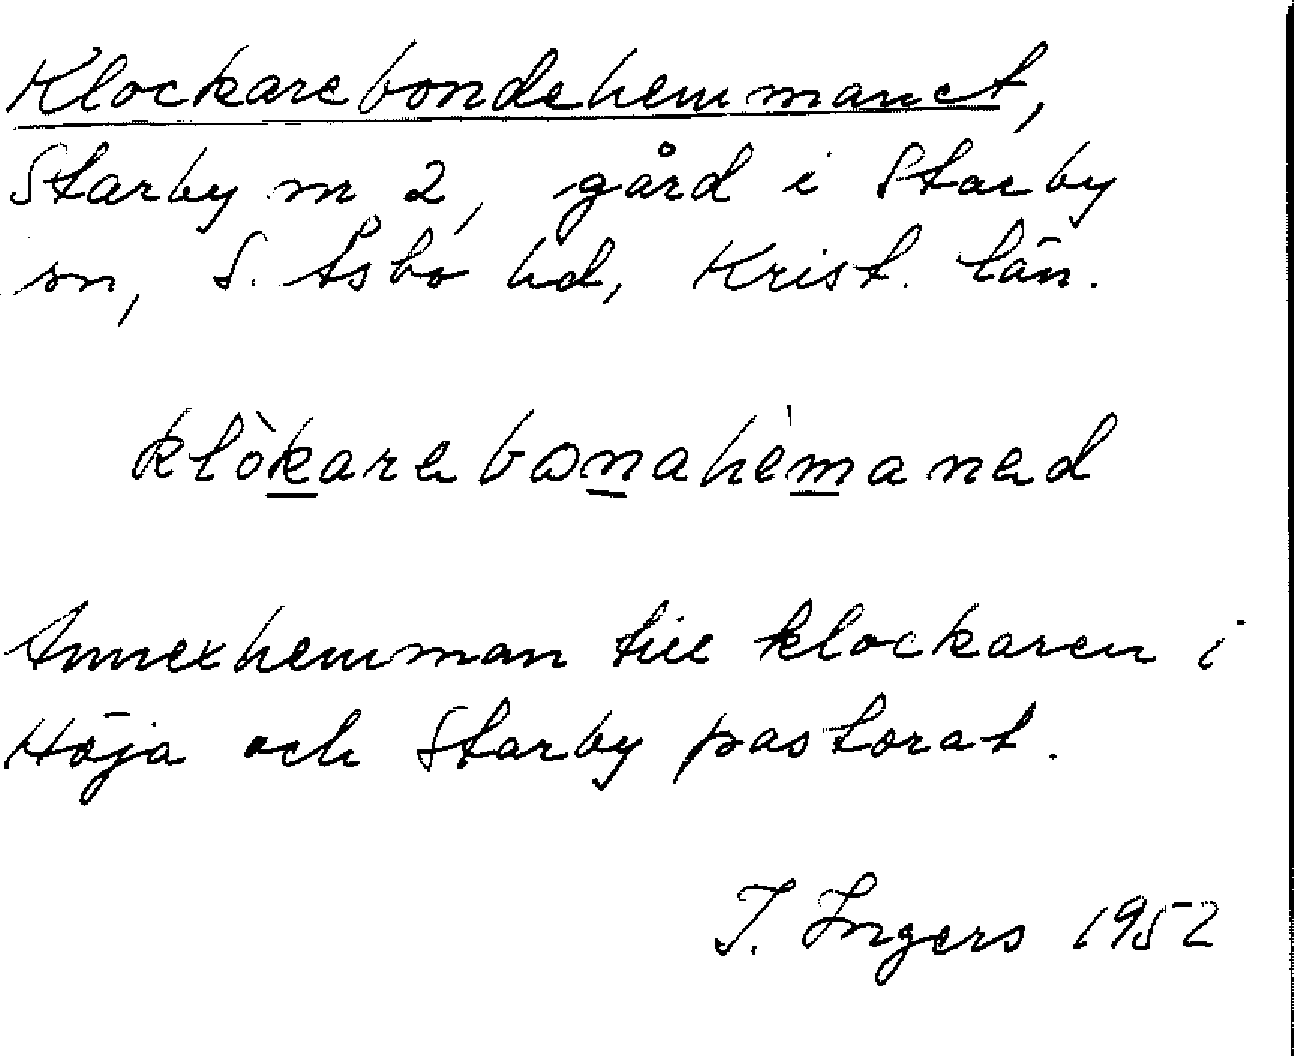 Klockarebondehemmanet,
Starby nr 2, gård i Starby
sn, S. Åsbo hd, Krist. län.
klòkarebonahèmaned
Annexhemman till klockaren i
Höja och Starby pastorat.
I. Ingers 1952